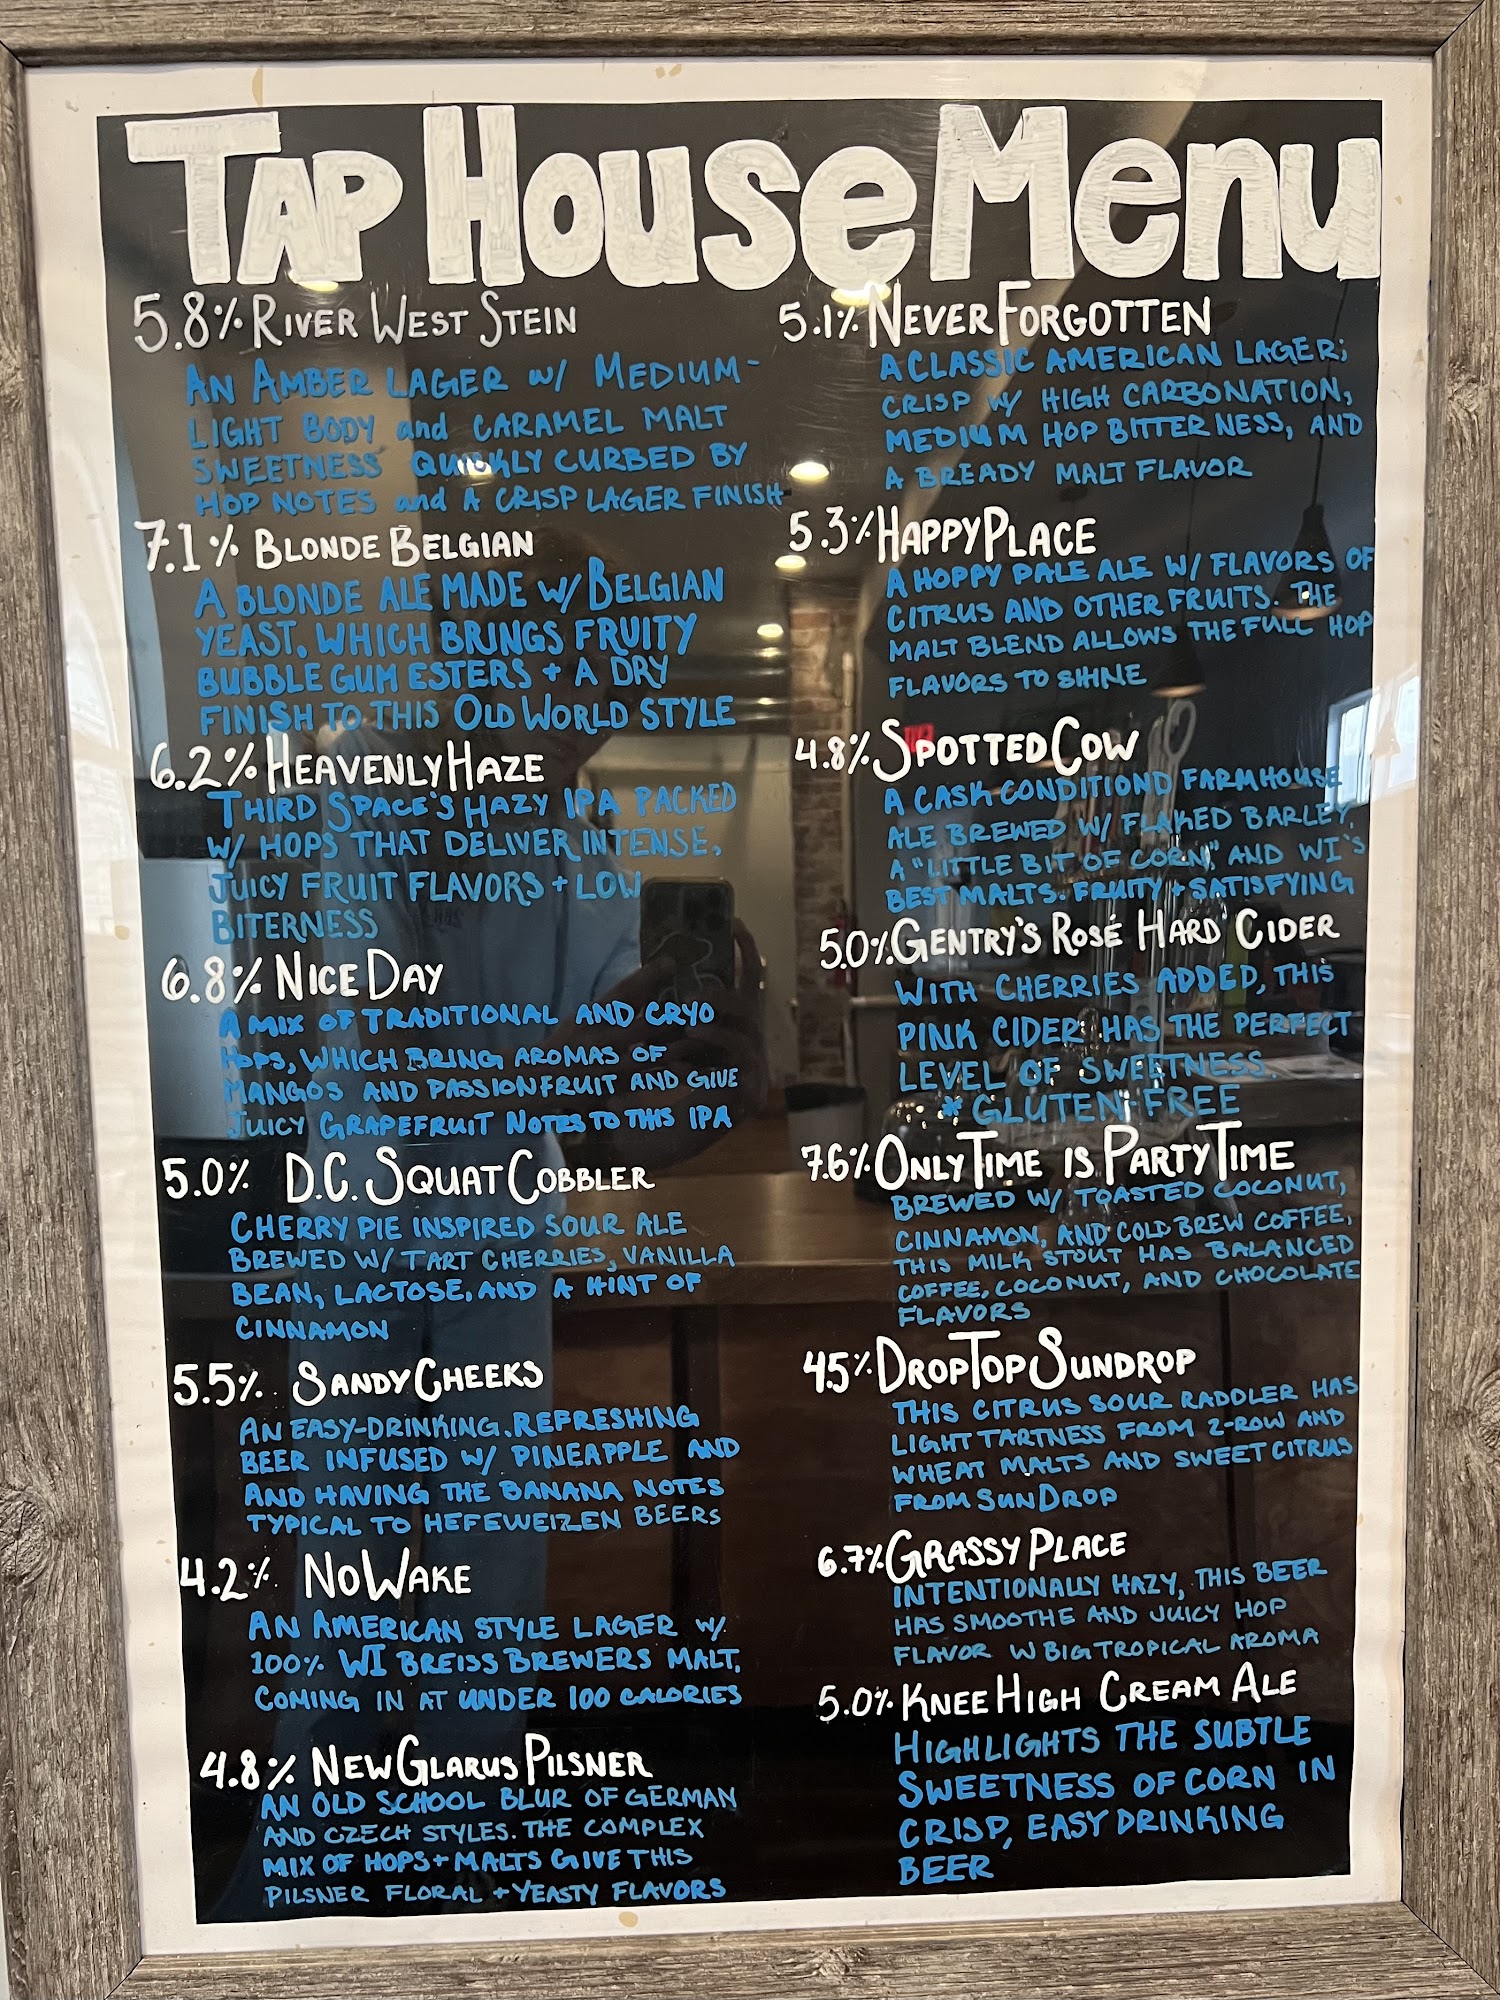 Tap House Menu
5.8% River West Stein
An Amber lager w/ Medium-
light body and caramel malt
sweetness quickly curbed by
hop notes and a crisp lager finish
7.1% Blonde Belgian
A blonde ale made w/ Belgian
yeast, which brings fruity
bubble gum esters + a dry
finish to this Old World style
6.2% Heavenly Haze
Third Space's Hazy IPA packed
w/ hops that deliver intense,
juicy fruit flavors + low
biterness
6.8% Nice Day
A mix of traditional and cryo
hops, which bring aromas of
mangos and passionfruit and give
juicy grapefruit notes to this IPA
5.0% D.C. Squat Cobbler
Cherry pie inspired sour ale
brewed w/ tart cherries, vanilla
bean, lactose, and a hint of
cinnamon
5.5% Sandy Cheeks
An easy-drinking, refreshing
beer infused w/ pineapple and
and having the banana notes
typical to hefeweizen beers
4.2% No Wake
An American style lager w/
100% WI Breiss Brewers malt,
coming in at under 100 calories
4.8% New Glarus Pilsner
An old school blur of German
and Czech styles. The complex
mix of hops + malts give this
pilsner floral + yeasty flavors
5.1% Never Forgotten
A classic American lager;
crisp w/ high carbonation,
medium hop bitterness, and
a bready malt flavor
5.3% Happy Place
A hoppy pale ale w/ flavors of
citrus and other fruits. The
malt blend allows the full hop
flavors to shine
4.8% Spotted Cow
A cask conditiond farmhouse
ale brewed w/ flaked barley,
a "little bit of corn," and WI's
best malts. Fruity + satisfying
5.0% Gentry's Rosé Hard Cider
With cherries added, this
pink cider has the perfect
level of sweetness.
* Gluten-free
7.6% Only Time is Party Time
Brewed w/ toasted coconut,
cinnamon, and cold brew coffee,
this milk stout has balanced
coffee, coconut, and chocolate
flavors
4.5% Drop Top Sundrop
This citrus sour raddler has
light tartness from 2-row and
wheat malts and sweet citrus
from SunDrop
6.7% Grassy Place
Intentionally hazy, this beer
has smoothe and juicy hop
flavor w big tropical aroma
5.0% Knee High Cream Ale
Highlights the subtle
sweetness of corn in
crisp, easy drinking
beer